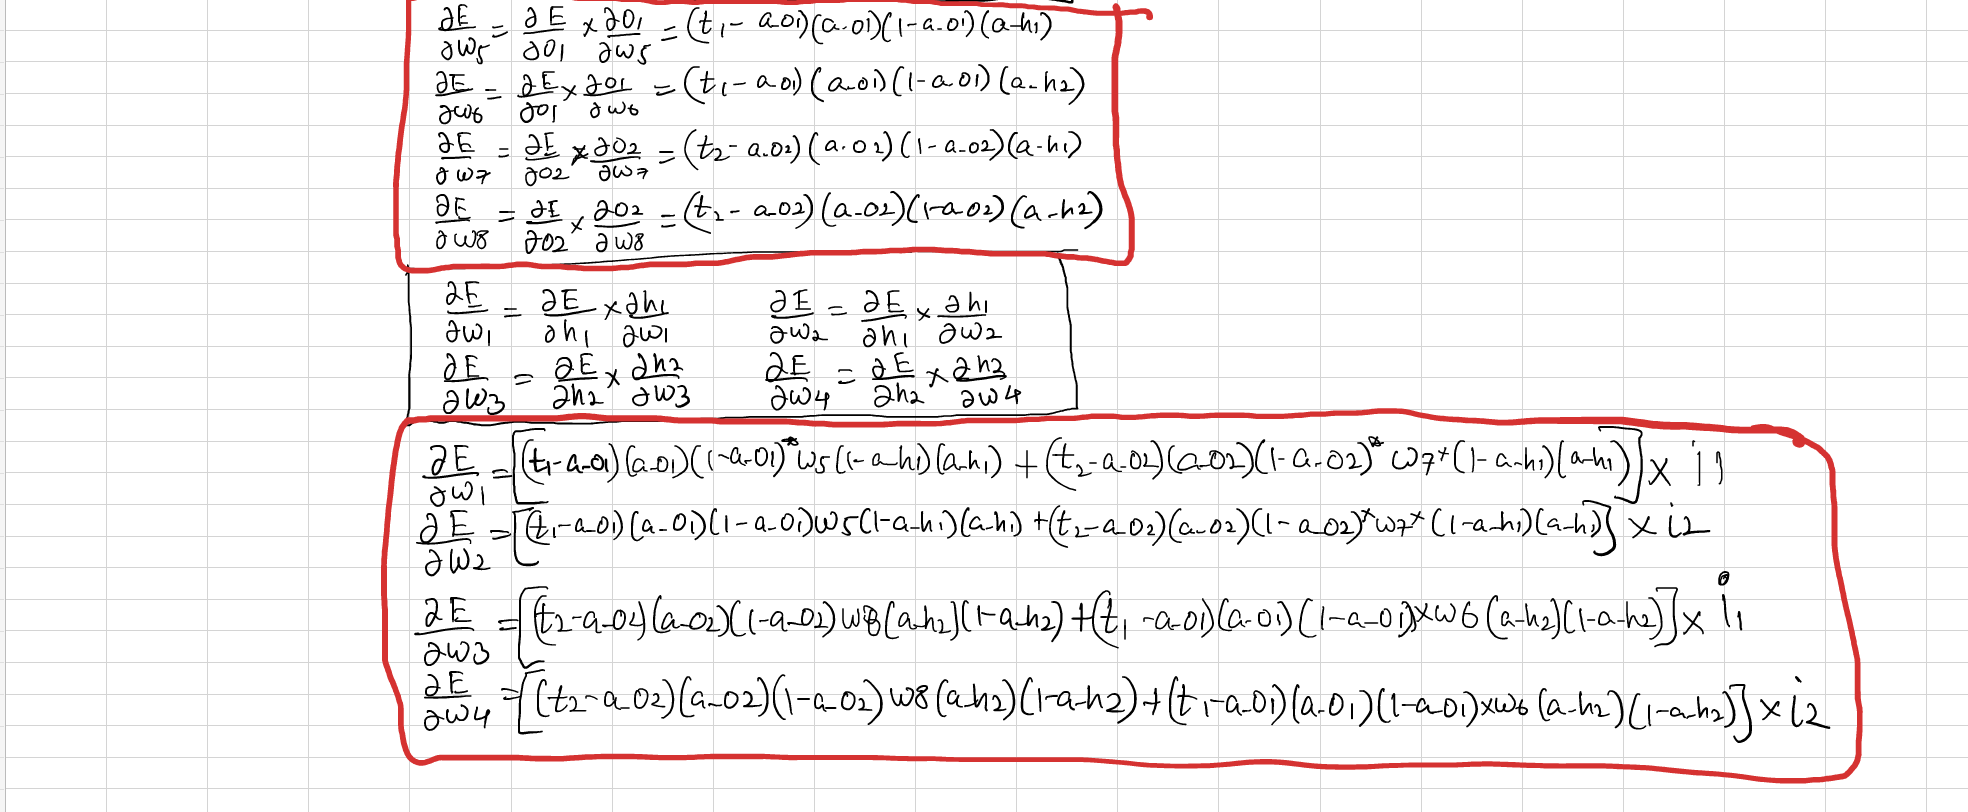 ∂E/∂w5 = ∂E/∂o1 × ∂o1/∂w5 = (t1 - a_o1)(a_o1)(1 - a_o1)(a_h1)
∂E/∂w6 = ∂E/∂o1 × ∂o1/∂w6 = (t1 - a_o1)(a_o1)(1 - a_o1)(a_h2)
∂E/∂w7 = ∂E/∂o2 × ∂o2/∂w7 = (t2 - a_o2)(a_o2)(1 - a_o2)(a_h1)
∂E/∂w8 = ∂E/∂o2 × ∂o2/∂w8 = (t2 - a_o2)(a_o2)(1 - a_o2)(a_h2)
∂E/∂w1 = ∂E/∂h1 × ∂h1/∂w1 ∂E/∂w2 = ∂E/∂h1 × ∂h1/∂w2
∂E/∂w3 = ∂E/∂h2 × ∂h2/∂w3 ∂E/∂w4 = ∂E/∂h2 × ∂h2/∂w4
∂E/∂w1 = [(t1 - a_o1)(a_o1)(1 - a_o1) * w5 (1 - a_h1)(a_h1) + (t2 - a_o2)(a_o2)(1 - a_o2) * w7 * (1 - a_h1)(a_h1)] × i1
∂E/∂w2 = [(t1 - a_o1)(a_o1)(1 - a_o1) w5 (1 - a_h1)(a_h1) + (t2 - a_o2)(a_o2)(1 - a_o2) * w7 * (1 - a_h1)(a_h1)] × i2
∂E/∂w3 = [(t2 - a_o2)(a_o2)(1 - a_o2) w8 (a_h2)(1 - a_h2) + (t1 - a_o1)(a_o1)(1 - a_o1) × w6 (a_h2)(1 - a_h2)] × i1
∂E/∂w4 = [(t2 - a_o2)(a_o2)(1 - a_o2) w8 (a_h2)(1 - a_h2) + (t1 - a_o1)(a_o1)(1 - a_o1) × w6 (a_h2)(1 - a_h2)] × i2